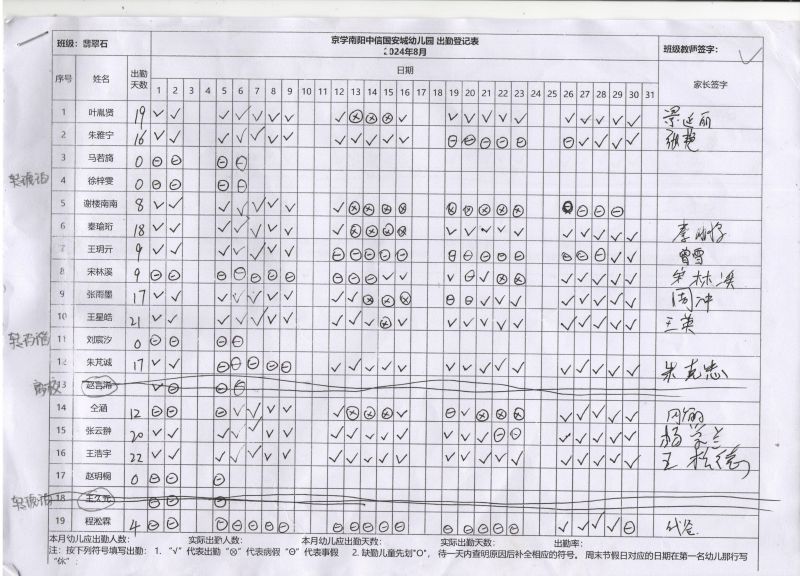 京学南阳中信国安城幼儿园 出勤登记表
班级：翡翠石
2024年8月
班级教师签字：
序号 姓名 出勤天数 日期 家长签字
1 2 3 4 5 6 7 8 9 10 11 12 13 14 15 16 17 18 19 20 21 22 23 24 25 26 27 28 29 30 31
1 叶胤贤 19 √ √ √ √ √ √ √ √ ⊗ ⊗ ⊗ √ √ √ √ √ √ √ √ √ √ √
2 朱雅宁 16 √ √ √ √ √ √ √ √ √ √ √ √ ⊖ ⊖ ⊖ ⊖ ⊖ ⊖ √ √ √ √
3 马若旖 0 ⊖ ⊖ ⊖ ⊖
4 徐梓雯 0 ⊖ ⊖ ⊖ ⊖
5 谢楼南南 8 √ √ √ √ √ √ √ √ ⊗ ⊗ ⊗ ⊗ ⊗ ⊗ ⊗ ⊗ ⊖ ⊖ ⊖
6 秦瑜珩 18 √ √ √ √ √ √ √ √ ⊗ ⊗ ⊗ ⊗ √ √ √ √ √ √ √ √ √ √
7 王玥亓 9 √ √ √ √ √ √ √ ⊖ ⊖ ⊖ ⊖ ⊖ ⊖ ⊖ ⊖ ⊖ ⊖ ⊖ ⊖ ⊖ √ √ 曾雪
8 宋林溪 9 ⊖ ⊖ ⊖ ⊖ ⊖ ⊖ ⊖ ⊖ ⊖ ⊖ √ √ √ ⊖ √ ⊗ ⊗ √ √ √ √ √ 宋林溪
9 张雨墨 17 √ √ √ √ √ √ √ √ √ ⊗ ⊗ ⊗ ⊖ ⊖ √ √ √ √ √ √ √ √ 周冲
10 王星皓 21 √ √ √ √ √ √ √ √ √ √ ⊗ √ √ √ √ √ √ √ √ √ √ √ 王英
11 刘宸汐 0 ⊖ ⊖ ⊖ ⊖
12 朱芃诚 17 √ √ ⊖ ⊖ ⊖ ⊖ ⊖ √ √ √ √ √ √ √ √ √ √ √ √ √ √ √ 朱克志
13 √ ⊖ ⊖ ⊖
14 仝涵 12 ⊖ ⊖ ⊖ √ √ √ √ √ ⊗ ⊗ ⊗ √ ⊖ √ ⊗ ⊗ ⊗ √ √ √ √ √
15 张云翀 20 √ √ √ √ √ √ √ √ √ √ √ √ √ √ √ ⊖ ⊖ √ √ √ √ √
16 王浩宇 22 √ √ √ √ √ √ √ √ √ √ √ √ √ √ √ √ √ √ √ √ √ √
17 赵玥桐 0 ⊖ ⊖ ⊖
18 ⊖ ⊖ ⊖
19 程淞霖 4 ⊖ ⊖ ⊖ ⊖ ⊖ ⊖ ⊖ ⊖ ⊖ ⊖ ⊖ ⊖ ⊖ ⊖ ⊖ ⊖ ⊖ √ √ √ √ ⊖
本月幼儿应出勤人数： 实际出勤人数： 本月幼儿应出勤天数： 实际出勤天数： 出勤率：
注：按下列符号填写出勤： 1. “√”代表出勤 “⊗”代表病假 “⊖”代表事假 2. 缺勤儿童先划“O”，待一天内查明原因后补全相应的符号。 周末节假日对应的日期在第一名幼儿那行写